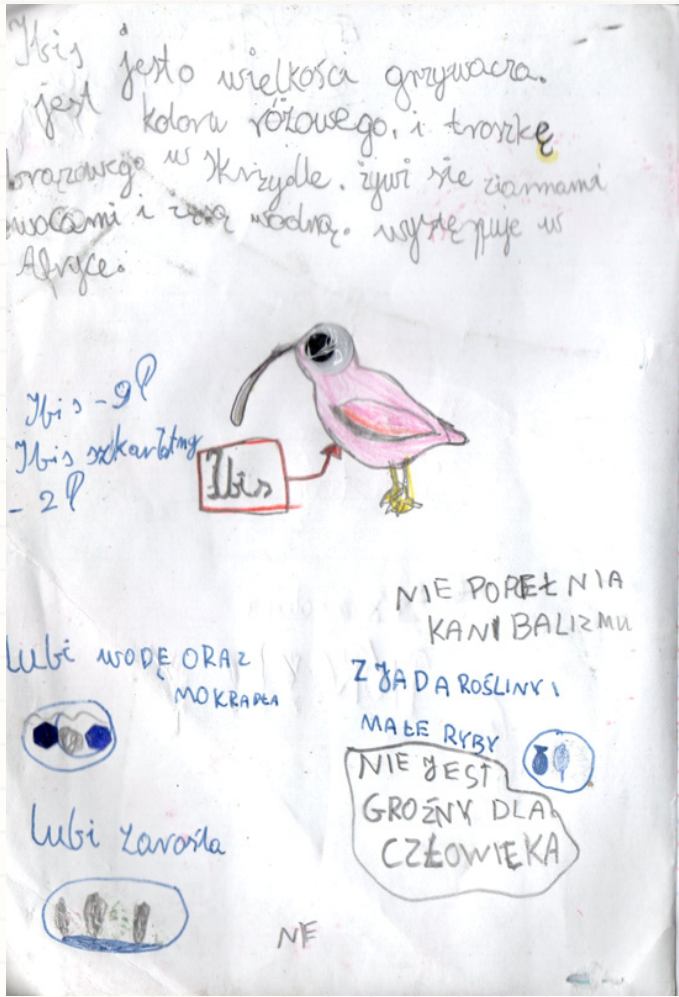 Ibis jest o wielkości grzywacza.
jest koloru różowego. i troszkę
brązowego w skrzydle. żywi się ziarnami
owocami i wodną. występuje w
Afryce.
Ibis - 9
Ibis szkarłatny
- 2
Ibis
NIE POPEŁNIA
KANIBALIZMU
lubi WODĘ ORAZ
MOKRADŁA
ZJADA ROŚLINY I
MAŁE RYBY
NIE JEST
GROŹNY DLA
CZŁOWIEKA
lubi zarośla
NE